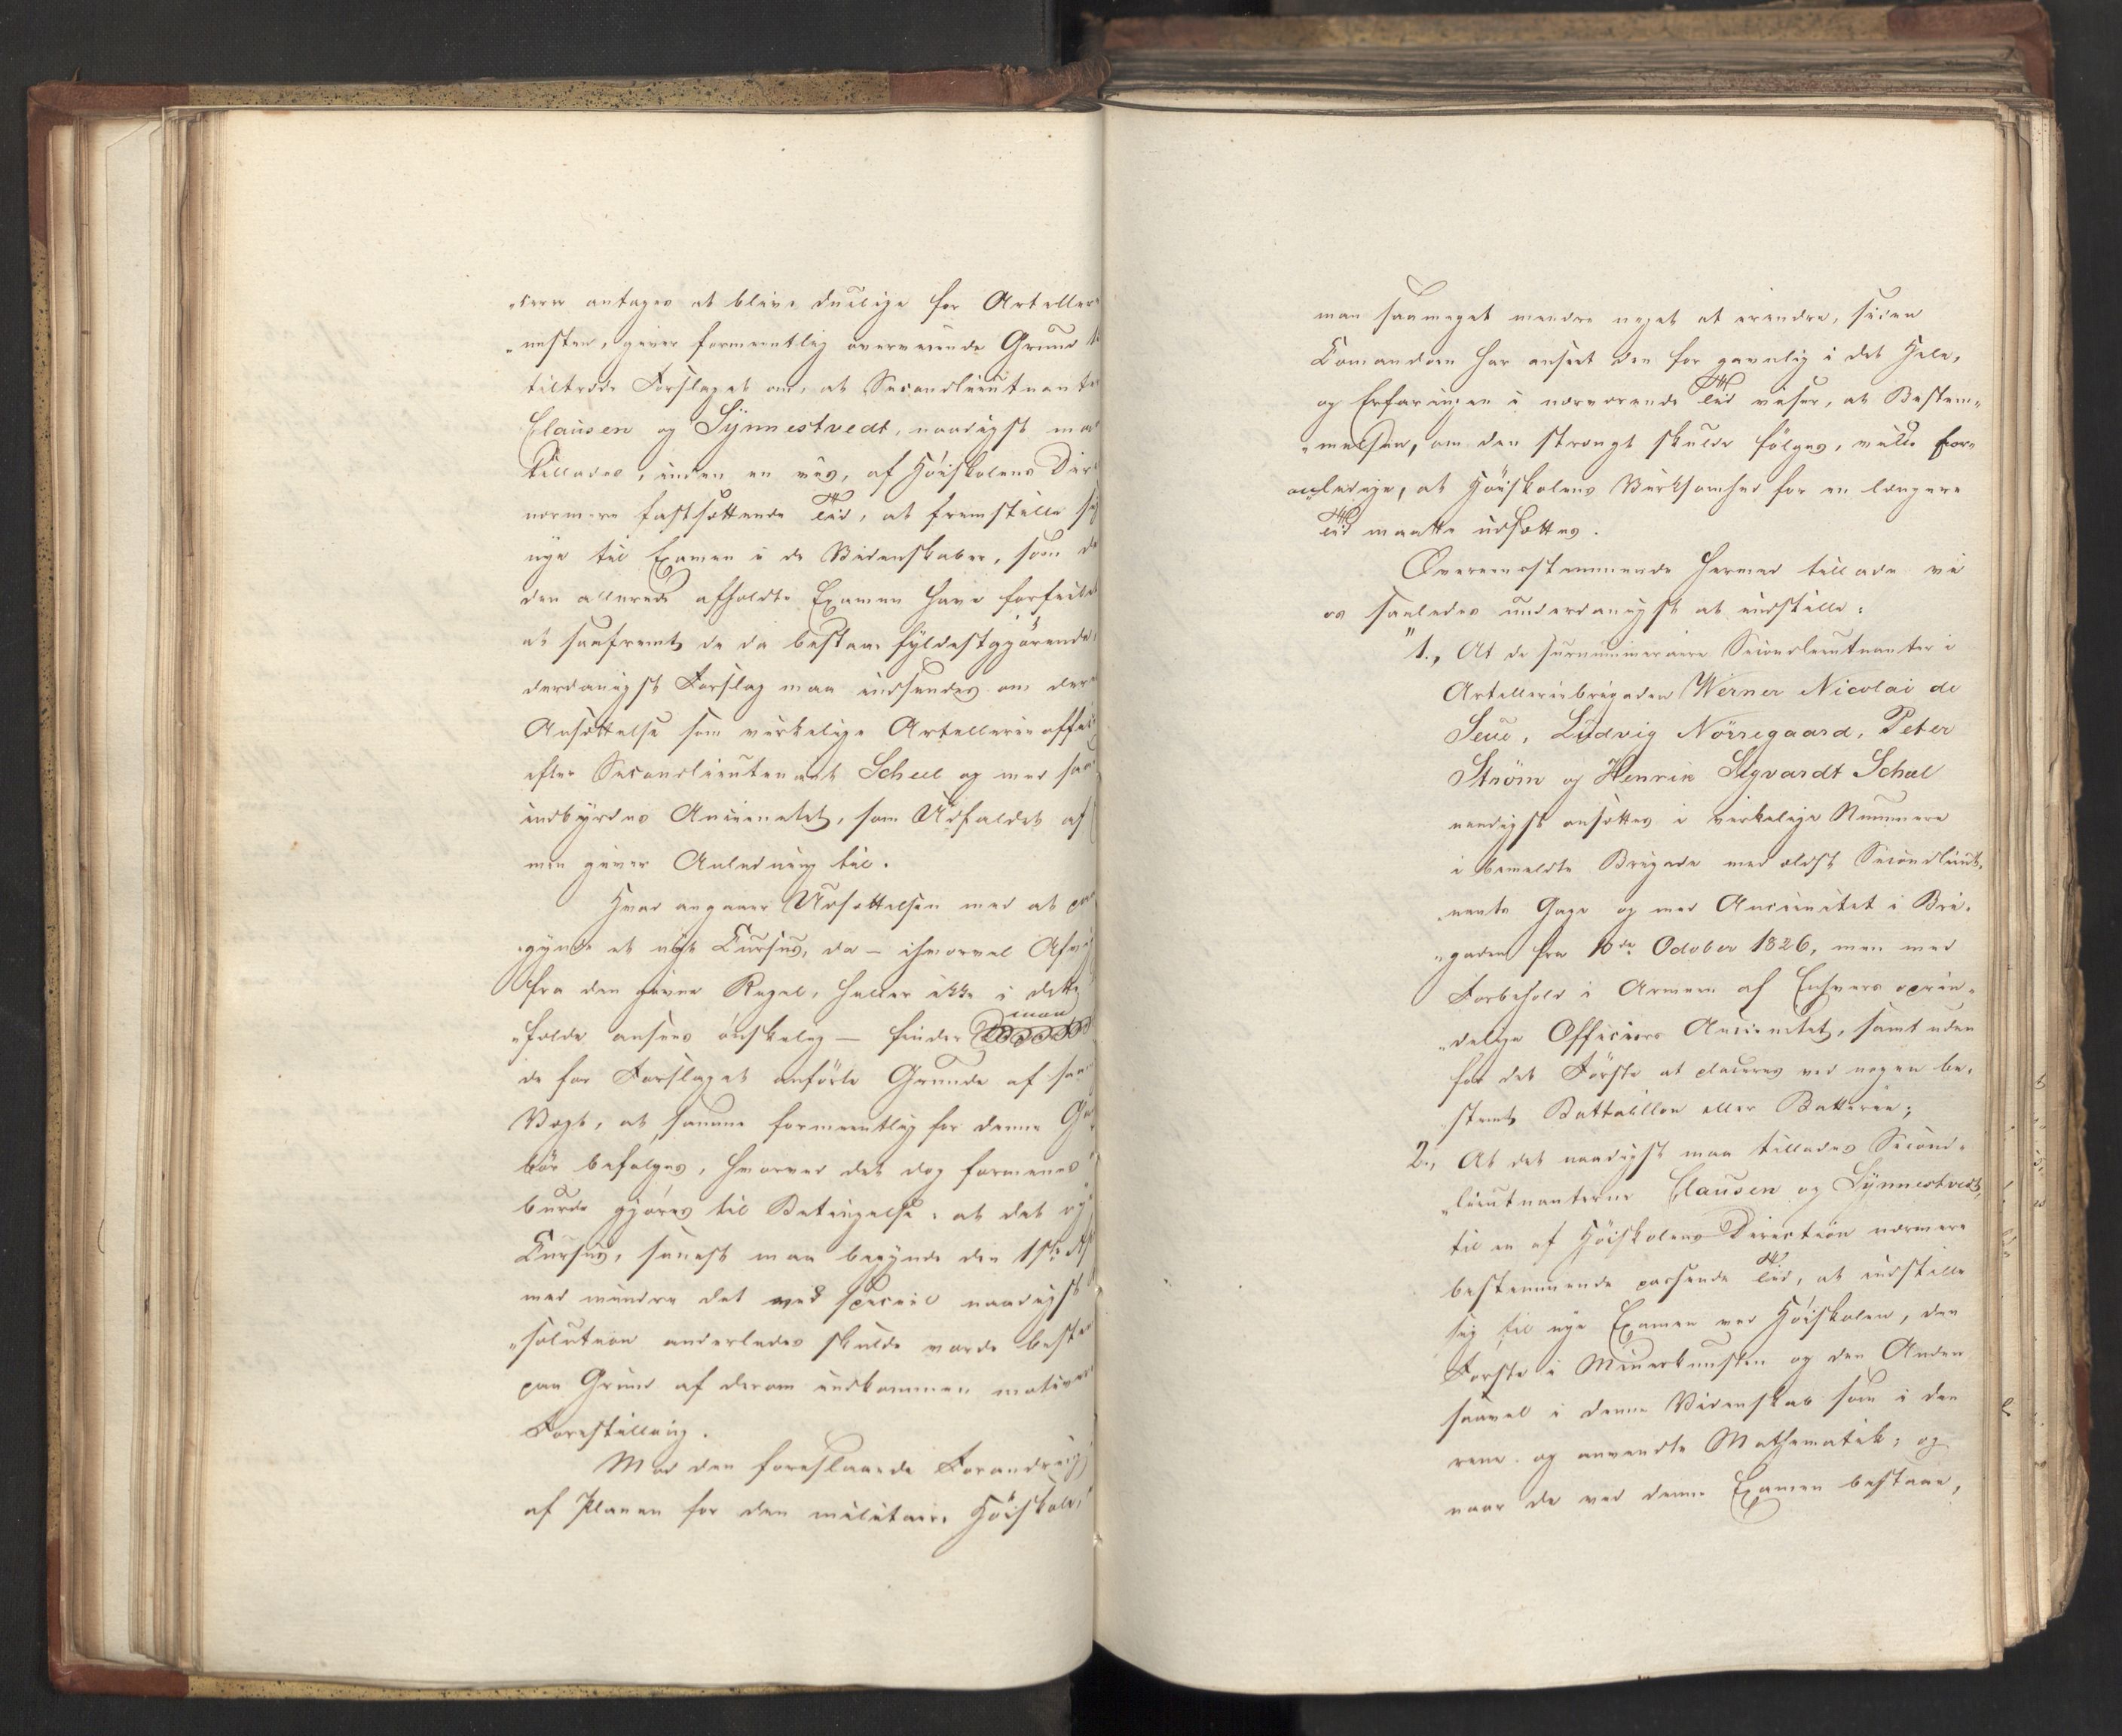 „cerer antages at blive duelige for Arteller
„nesten, giver formeentlig overveiende Grund t
tiltræde Forslaget om, at Secondlieutnante
Clausen og Synnestvedt, naadigst maa
tillades, inden en vis, af Høiskolens Dir
nærmere fastsættende Tid, at fremstille sig
nye til Examen i de Videnskaber, som de
den allerede afholdte Examen have forfeilet
at saafremt de da bestaae fyldestgjørende,
derdanigst Forslag maa indsendes om dere
Ansættelse som virkelige Artellerieoffici
efter Secondlieutenant Scheel og med saa
indbyrdes Anciennetet, som Udfaldet af
men giver Anledning til.
Hvad angaaer Udsættelsen med at paa
„gynde et nyt Cursus, da – ihvorvel Afvig
fra den givne Regel, heller ikke i dette
„fælde ansees ønskelig – finder man
de for Forslaget anførte Grunde af saa
Vægt, at samme formeentlig for denne Ga
bør befølges, hvorved det dog formenes
burde gjøres til Betingelse: at det ny
Cursus, senest maa begynde den 1ste Ap
med mindre det ved speciel naadigst
„solution anderledes skulde vorde beste
paa Grund af derom indkommen motiver
Forestilling.
Mod den foreslaaede Forandring
af Planen for den militaire Høiskole,
man saameget mindre noget at erindre, siden
Comandoen har anseet den for gavnlig i det Hele,
og Erfaringen i nærværende Tid viser, at Bestem„
„melsen, om den strængt skulde følges, vilde for„
anledige, at Høiskolens Virksomhed for en længere
Tid maatte udsættes.
Overeensstemmende hermed tillade vi
os saaledes underdanigst at indstille:
"1., At de surnummeraire Secondlieutnanter i
Artelleriebrigaden Werner Nicolai de
Seue, Ludvig Nörregaard, Peter
Ström og Henrik Sigvardt Scheel
naadigst ansættes i virkelige Nummere
i bemeldte Brigade med ældst Secondlieut„
„nants Gage og med Anciennitet i Bri„
„gaden fra 10de October 1826, men med
Forbehold i Armeen af Enhvers oprin„
„delige Officiers Anciennetet, samt uden
for det Første at placeres ved nogen be„
stemt Battaillon eller Batterie;
2., At det naadigst maa tillades Second„
„lieutnanterne Clausen og Synnestvedt,
til en af Høiskolens Direction nærmere
bestemmende passende Tid, at indstille
sig til nye Examen ved Høiskolen, den
Første i Mineerkunsten og den Anden
saavel i denne Videnskab som i den
rene og anvendte Mathematik; og
naar de ved denne Examen bestaae,